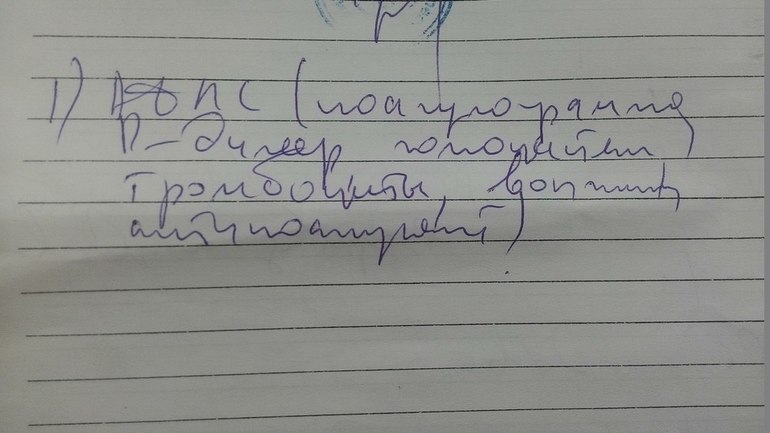 1) АФС (коагулограмма
Д-димер гомоцистеин,
тромбоциты, волчан.
антикоагулянт)